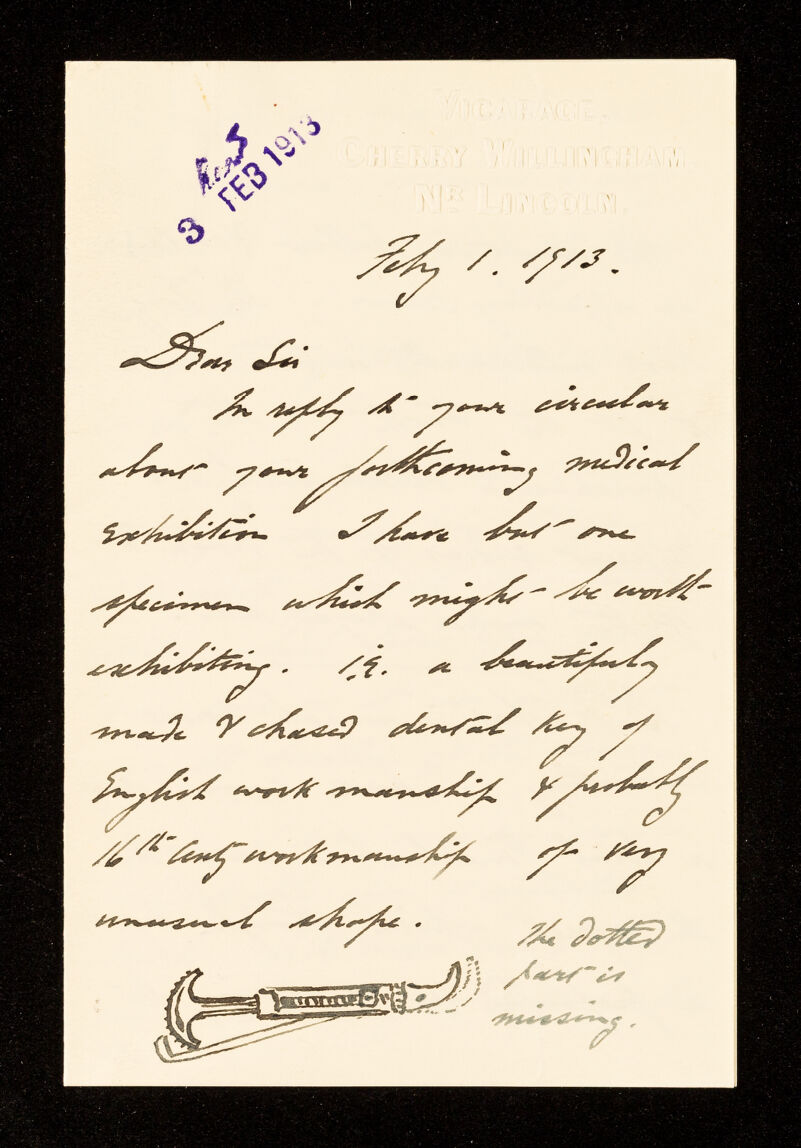 VICARAGE.
CHERRY WILLINGHAM
NR LINCOLN.
Recd
3 FEB 1913
Feby 1. 1913.
Dear Sir
In reply to your circular
about your forthcoming medical
exhibition I have but one
specimen which might be worth
exhibiting. i.e. a beautifuly
made & chased dental key of
English work manship & probably
16th Centy workmanship of very
unusual shape.
The dotted
part is
missing.